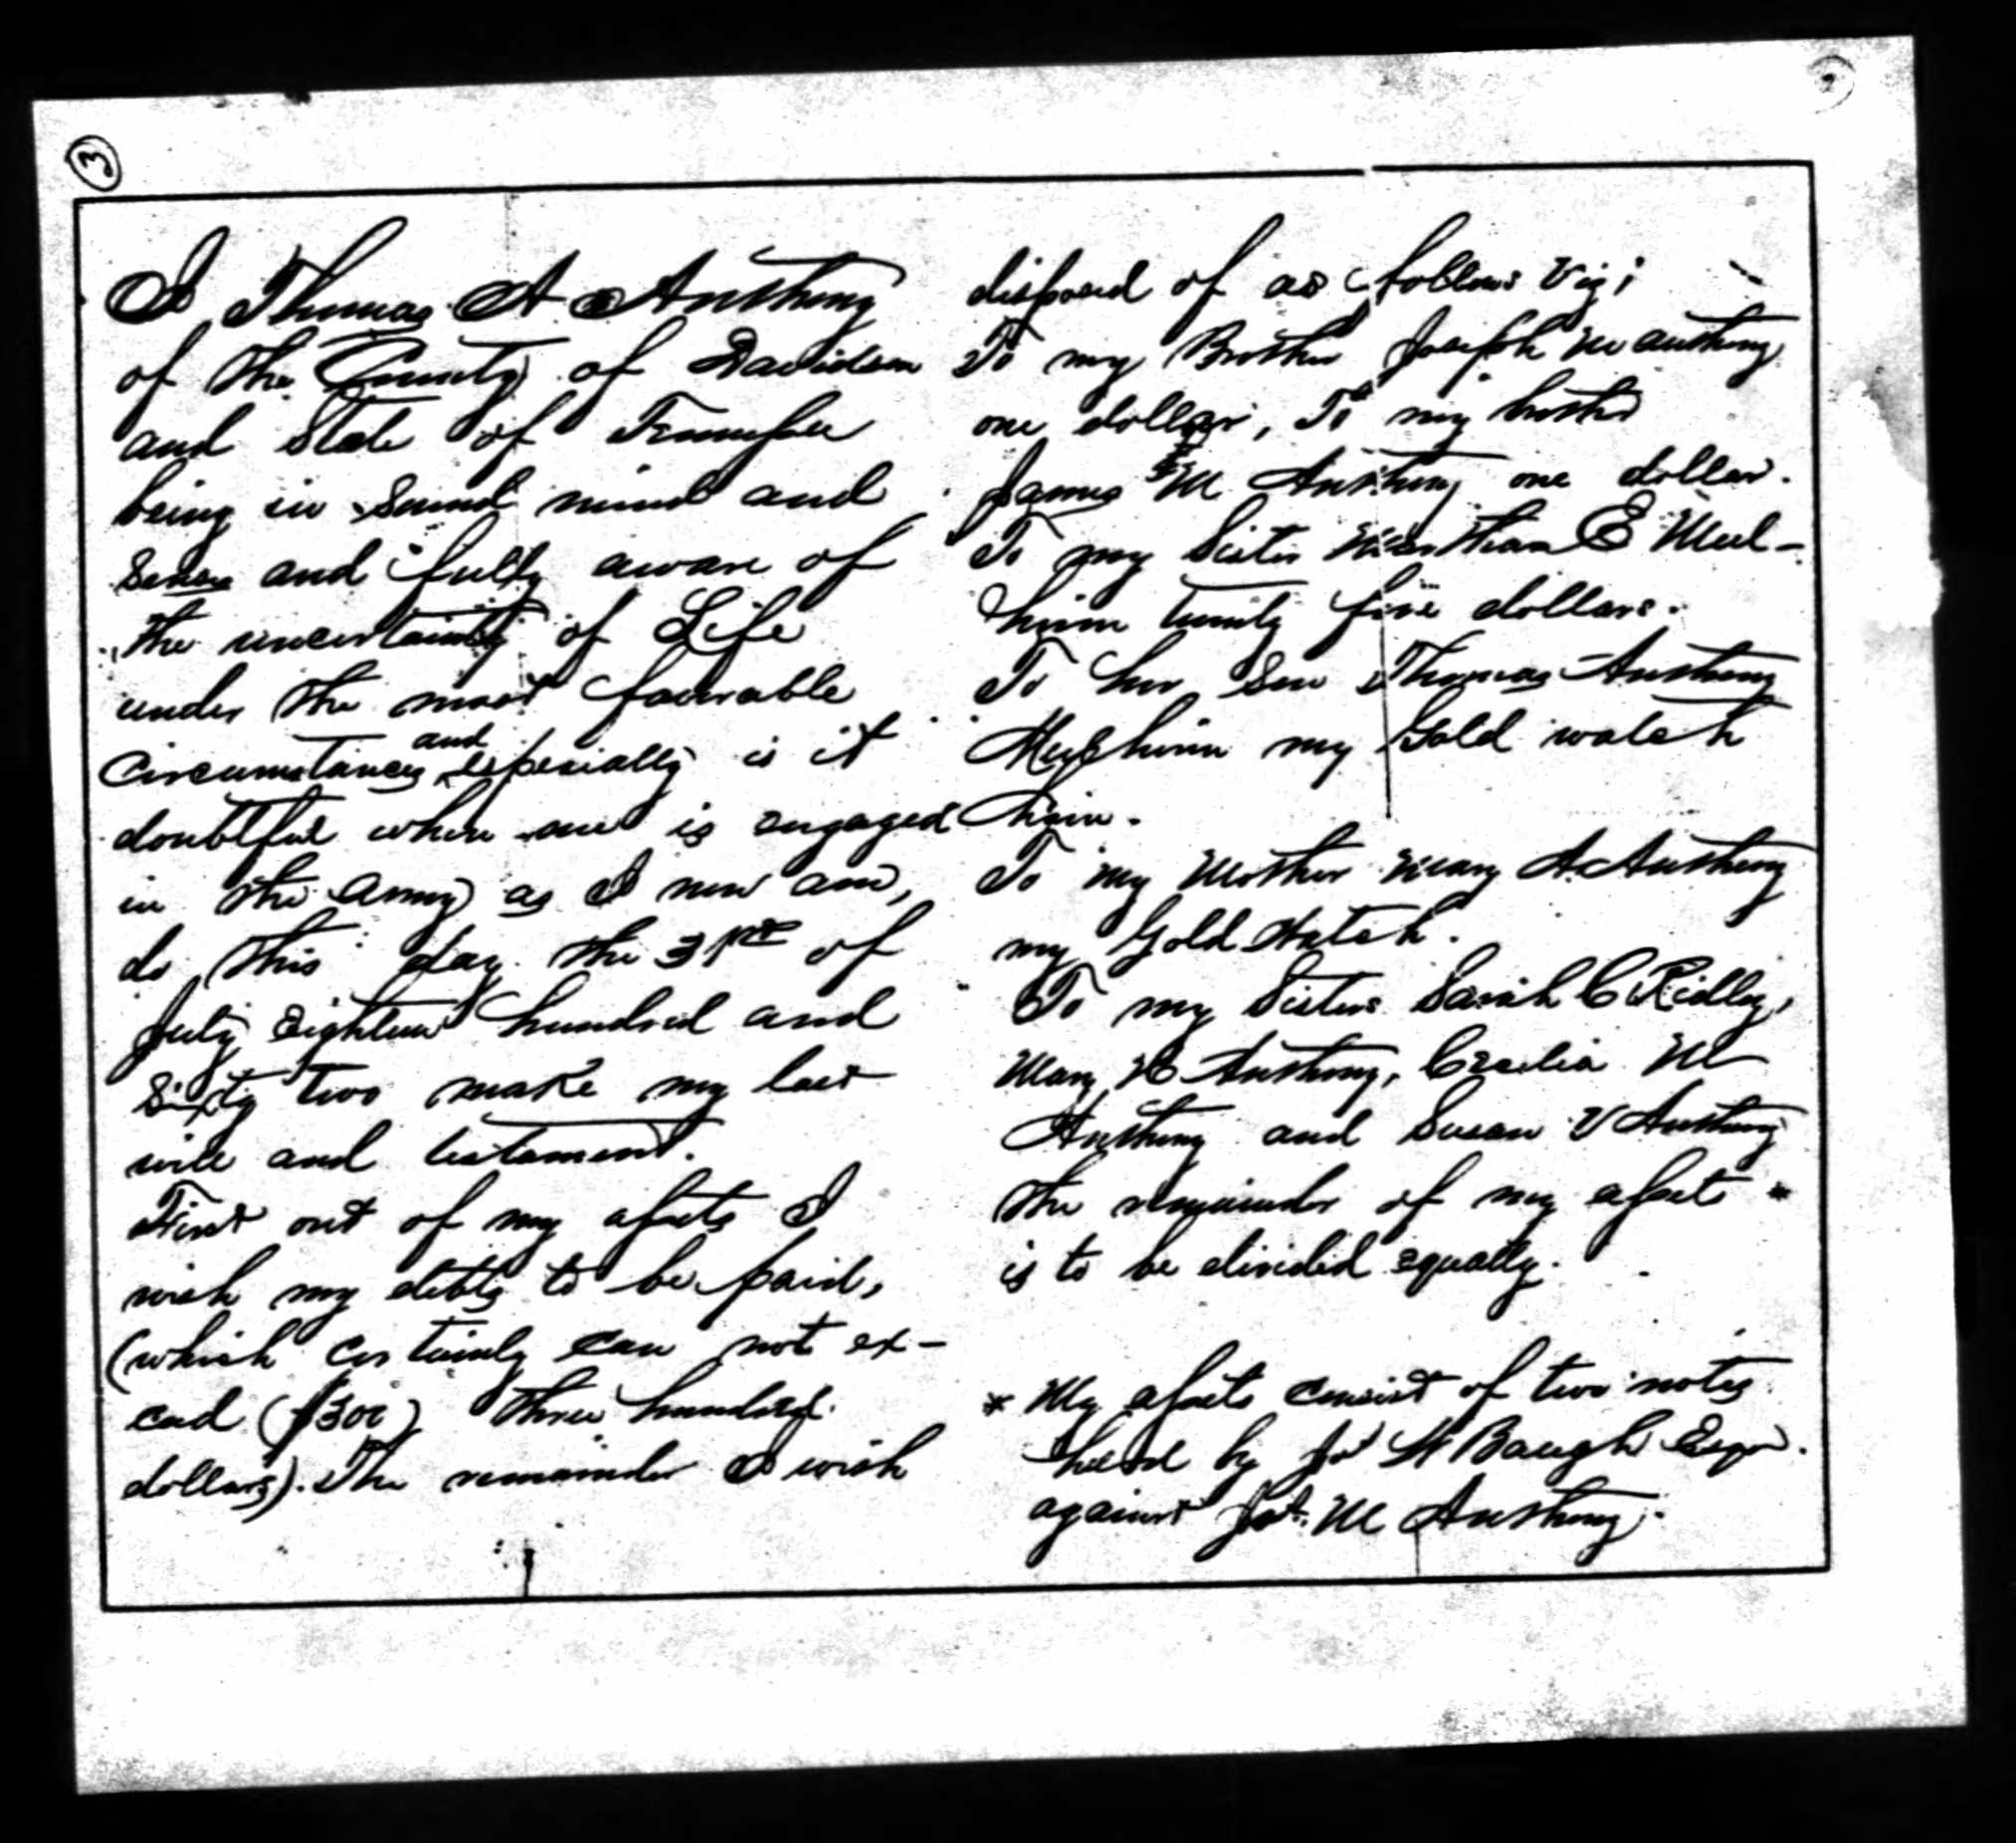 3
I Thomas A Anthony
of the County of Davidson
and State of Tennessee
being in sound mind and
sense and fully aware of
the uncertainty of Life
under the most favorable
Circumstances and especially is it
doubtful when one is engaged
in the Army as I now am,
do this day the 31st of
July Eighteen hundred and
Sixty two make my last
will and testament.
First out of my assets I
wish my debts to be paid,
(which certainly can not ex-
ceed ($300) three hundred
dollars). The remainder I wish
disposed of as follows viz;
To my Brother Joseph W Anthony
one dollar, To my brother
James M Anthony one dollar.
To my Sister Marthan E Mul-
hirin twenty five dollars.
To her Son Thomas Anthony
Mulhirin my Gold watch
chain.
To my Mother Mary A. Anthony
my Gold Watch.
To my Sisters Sarah C Ridley,
Mary Anthony, Cecelia M
Anthony and Susan V Anthony
the remainder of my assets *
is to be divided equally.
* My assets consist of two notes
held by Jo H Baugh Esqr.
against Jas. M Anthony.